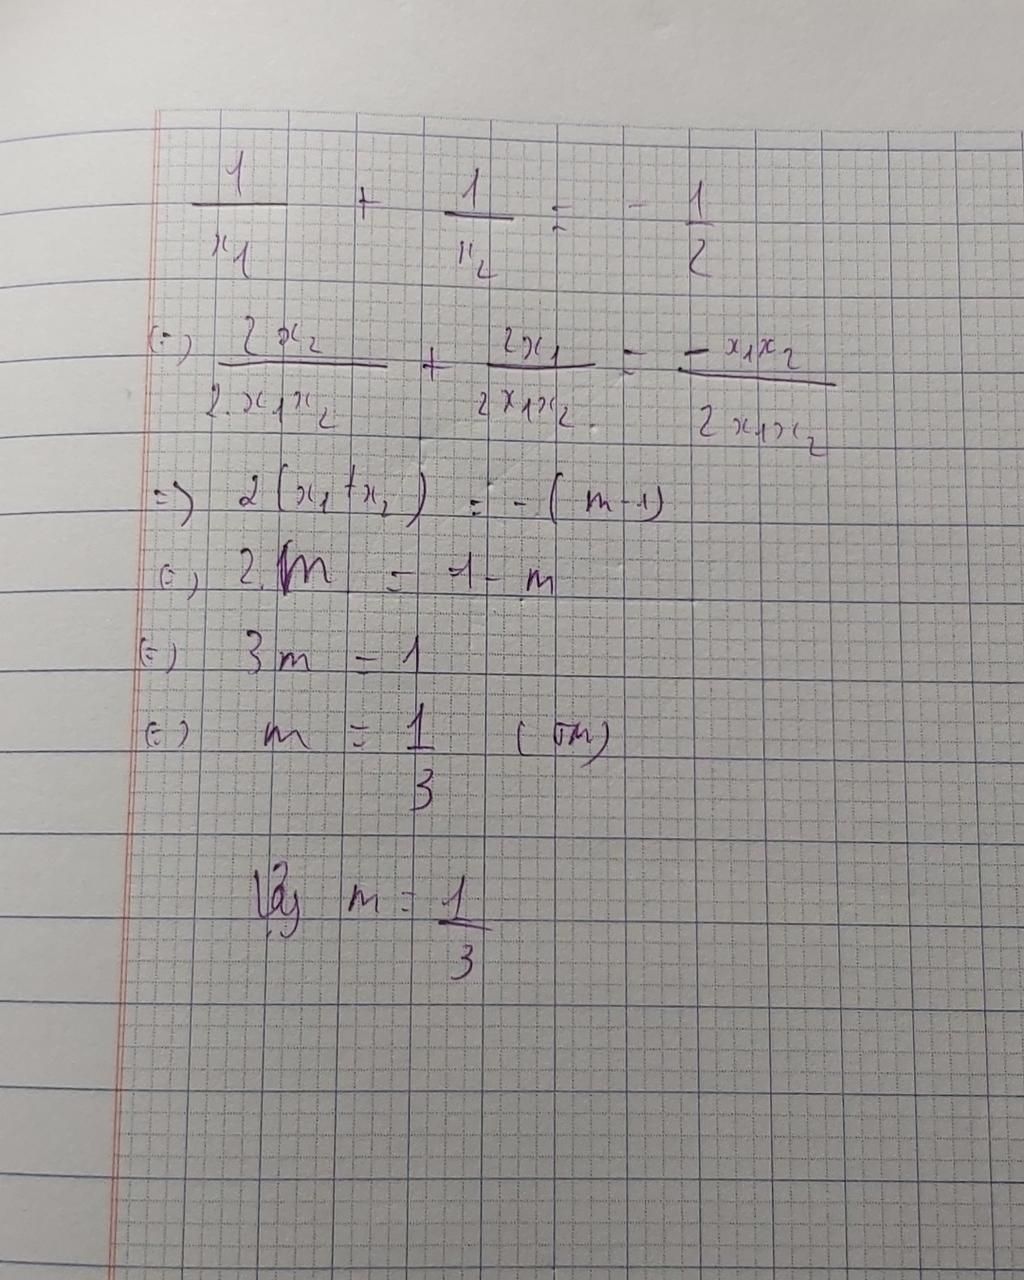 1/x₁ + 1/x₂ = - 1/2
(=) 2x₂/2.x₁x₂ + 2x₁/2x₁x₂. = - x₁x₂/2x₁x₂
=) 2(x₁+x₂) = - (m-1)
(=) 2.m = 1 - m
(=) 3m = 1
(=) m = 1/3 (TM)
Vậy m = 1/3